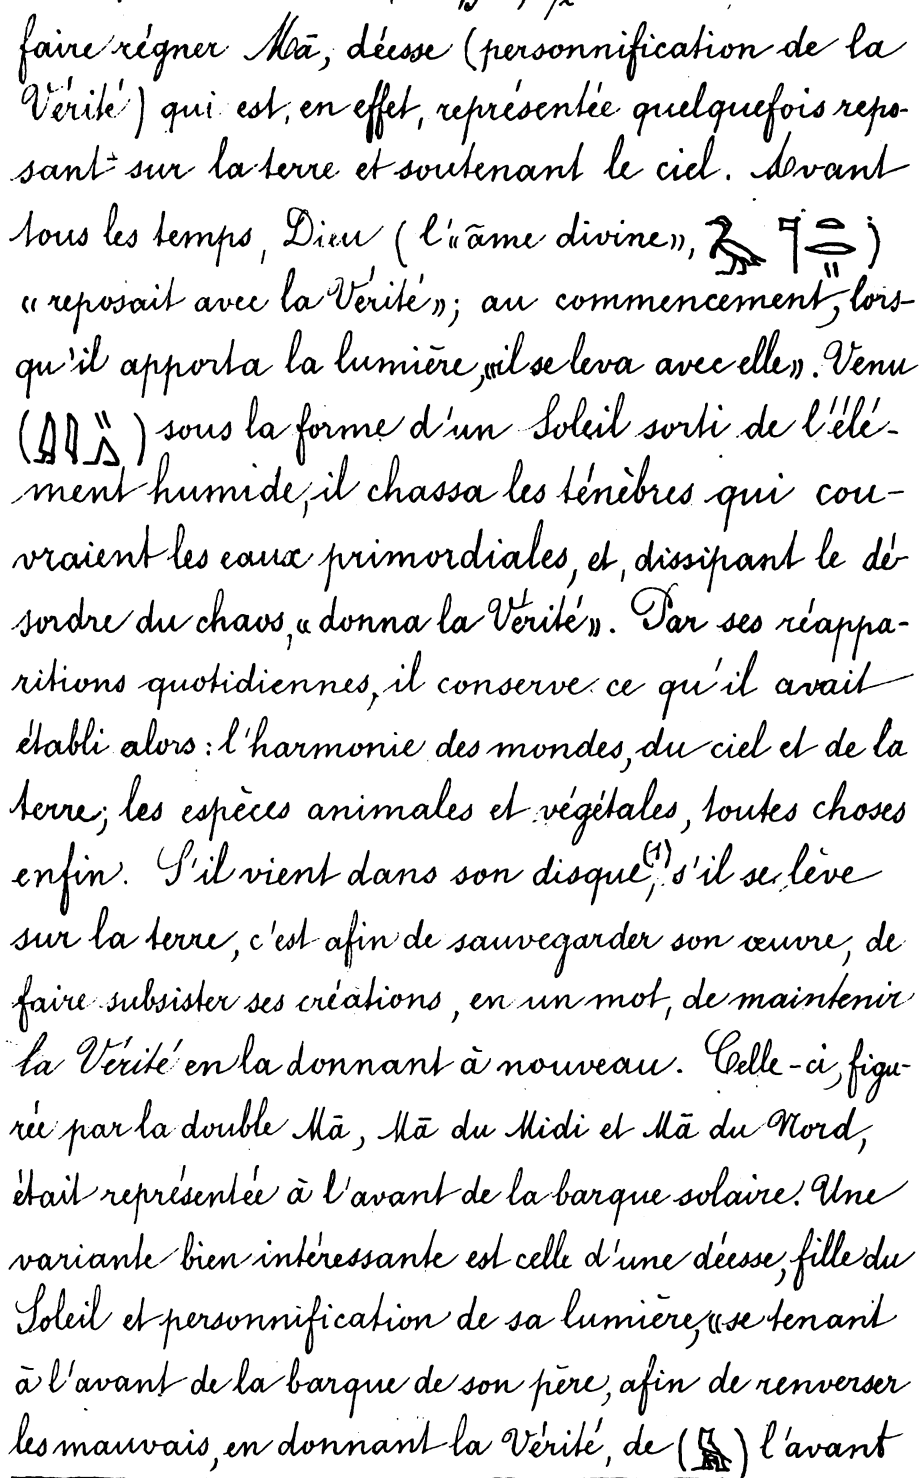 faire régner Mā, déesse (personnification de la
Vérité) qui est, en effet, représentée quelquefois repo-
sant sur la terre et soutenant le ciel. Avant
tous les temps, Dieu (l'«āme divine», )
« reposait avec la Vérité»; au commencement, lors-
qu'il apporta la lumière, «il se leva avec elle». Venu
( ) sous la forme d'un Soleil sorti de l'élé-
ment humide, il chassa les ténèbres qui cou-
vraient les eaux primordiales, et, dissipant le dé-
sordre du chaos, « donna la Vérité». Par ses réappa-
ritions quotidiennes, il conserve ce qu'il avait
établi alors : l'harmonie des mondes, du ciel et de la
terre; les espèces animales et végétales, toutes choses
enfin. S'il vient dans son disque(1), s'il se lève
sur la terre, c'est afin de sauvegarder son œuvre, de
faire subsister ses créations, en un mot, de maintenir
la Vérité en la donnant à nouveau. Celle-ci, figu-
rée par la double Mā, Mā du Midi et Mā du Nord,
était représentée à l'avant de la barque solaire. Une
variante bien intéressante est celle d'une déesse, fille du
Soleil et personnification de sa lumière, «se tenant
à l'avant de la barque de son père, afin de renverser
les mauvais, en donnant la Vérité, de ( ) l'avant